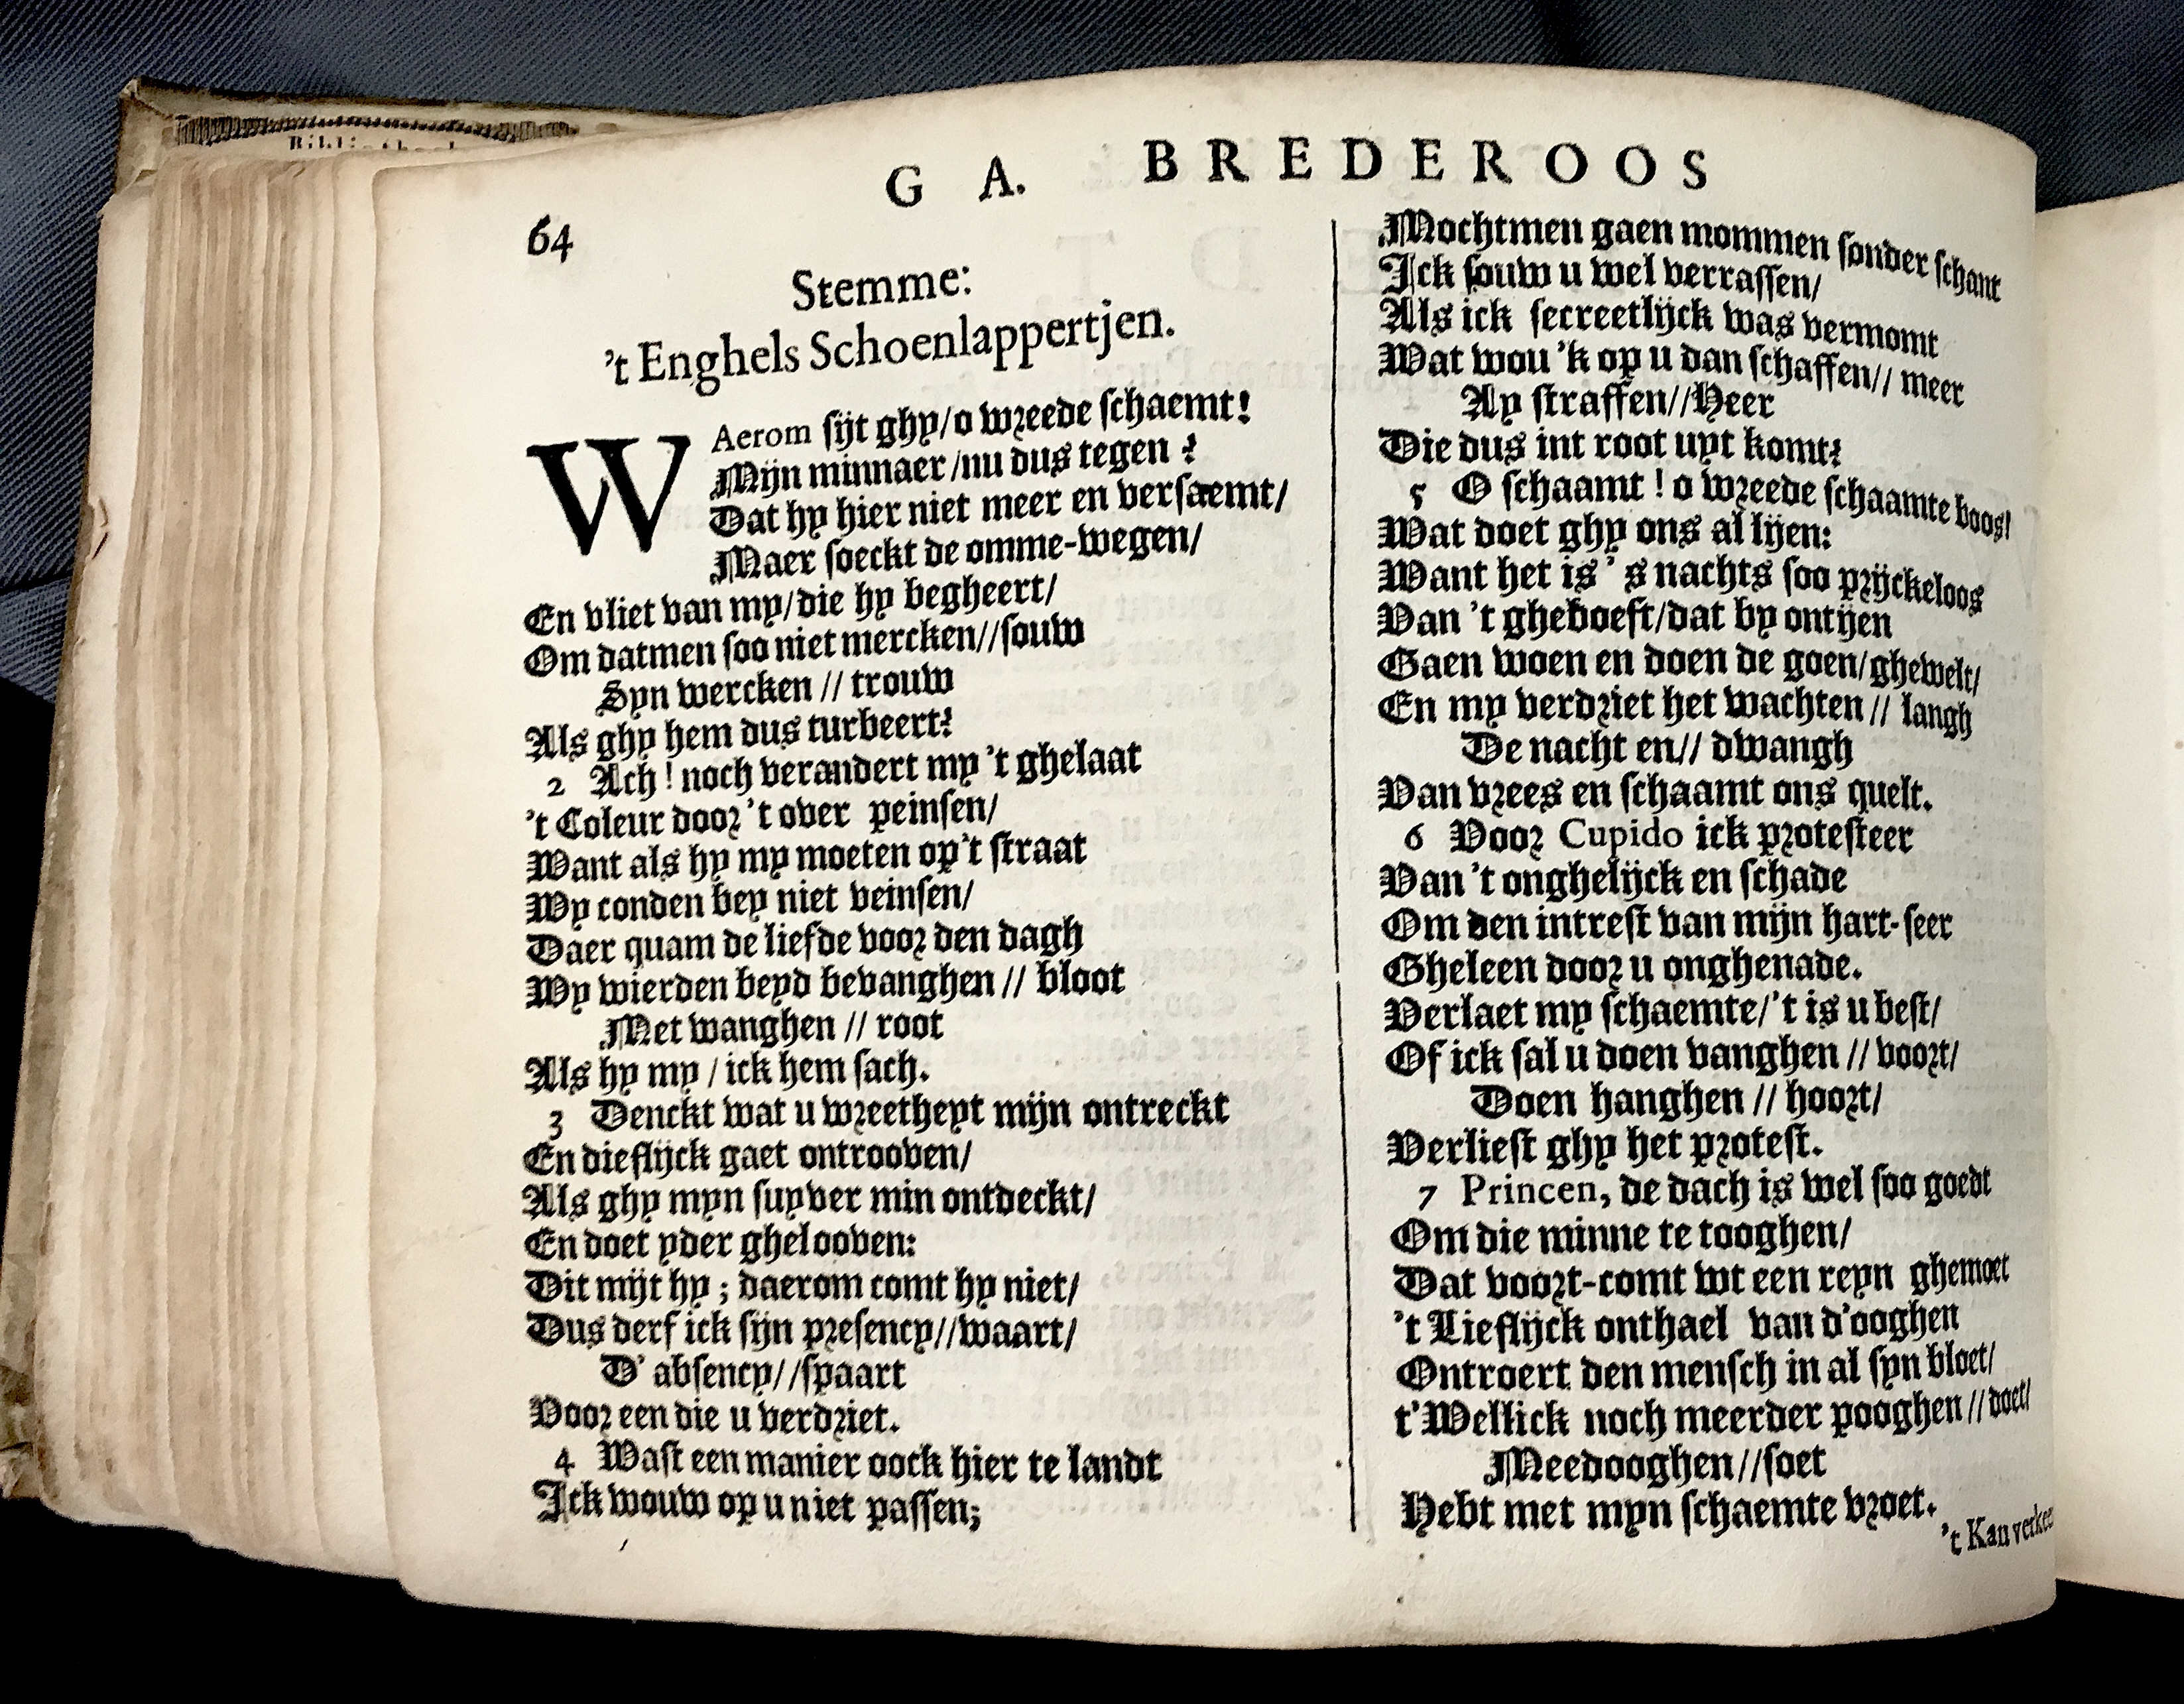 G A. BREDEROOS
64
Stemme:
't Enghels Schoenlappertjen.
WAerom sijt ghy/o wreede schaemt!
Mijn minnaer/nu dus tegen?
Dat hy hier niet meer en versaemt/
Maer soeckt de omme-wegen/
En vliet van my/die hy begheert/
Om datmen soo niet mercken//souw
Syn wercken // trouw
Als ghy hem dus turbeert?
2 Ach! noch verandert my 't ghelaat
't Coleur door 't over peinsen/
Want als hy my moeten op't straat
Wy conden bey niet veinsen/
Daer quam de liefde voor den dagh
Wy wierden beyd bevanghen // bloot
Met wanghen // root
Als hy my / ick hem sach.
3 Denckt wat u wreetheyt mijn ontreckt
En dieflijck gaet ontrooven/
Als ghy myn suyver min ontdeckt/
En doet yder ghelooven:
Dit mijt hy; daerom comt hy niet/
Dus derf ick sijn presency//waart/
D' absency//spaart
Voor een die u verdriet.
4 Wast een manier oock hier te landt
Ick wouw op u niet passen;
Mochtmen gaen mommen sonder schant
Ick souw u wel verrassen/
Als ick secreetlijck was vermomt
Wat wou 'k op u dan schaffen// meer
Ay straffen//Heer
Die dus int root uyt komt?
5 O schaamt! o wreede schaamte boos!
Wat doet ghy ons al lijen:
Want het is 's nachts soo prijckeloos
Van 't gheboeft/dat by ontijen
Gaen woen en doen de goen/ghewelt/
En my verdriet het wachten // langh
De nacht en// dwangh
Van vrees en schaamt ons quelt.
6 Voor Cupido ick protesteer
Van 't onghelijck en schade
Om den intrest van mijn hart-seer
Gheleen door u onghenade.
Verlaet my schaemte/'t is u best/
Of ick sal u doen vanghen // voort/
Doen hanghen // hoort/
Verliest ghy het protest.
7 Princen, de dach is wel soo goedt
Om die minne te tooghen/
Dat voort-comt wt een reyn ghemoet
't Lieflijck onthael van d'ooghen
Ontroert den mensch in al syn bloet/
t'Wellick noch meerder pooghen // doet/
Meedooghen//soet
Hebt met myn schaemte vroet.
't Kan